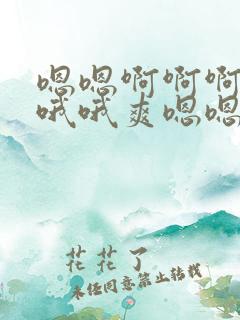 嗯嗯啊啊啊
哦哦爽嗯嗯
花花了
未经同意禁止转载